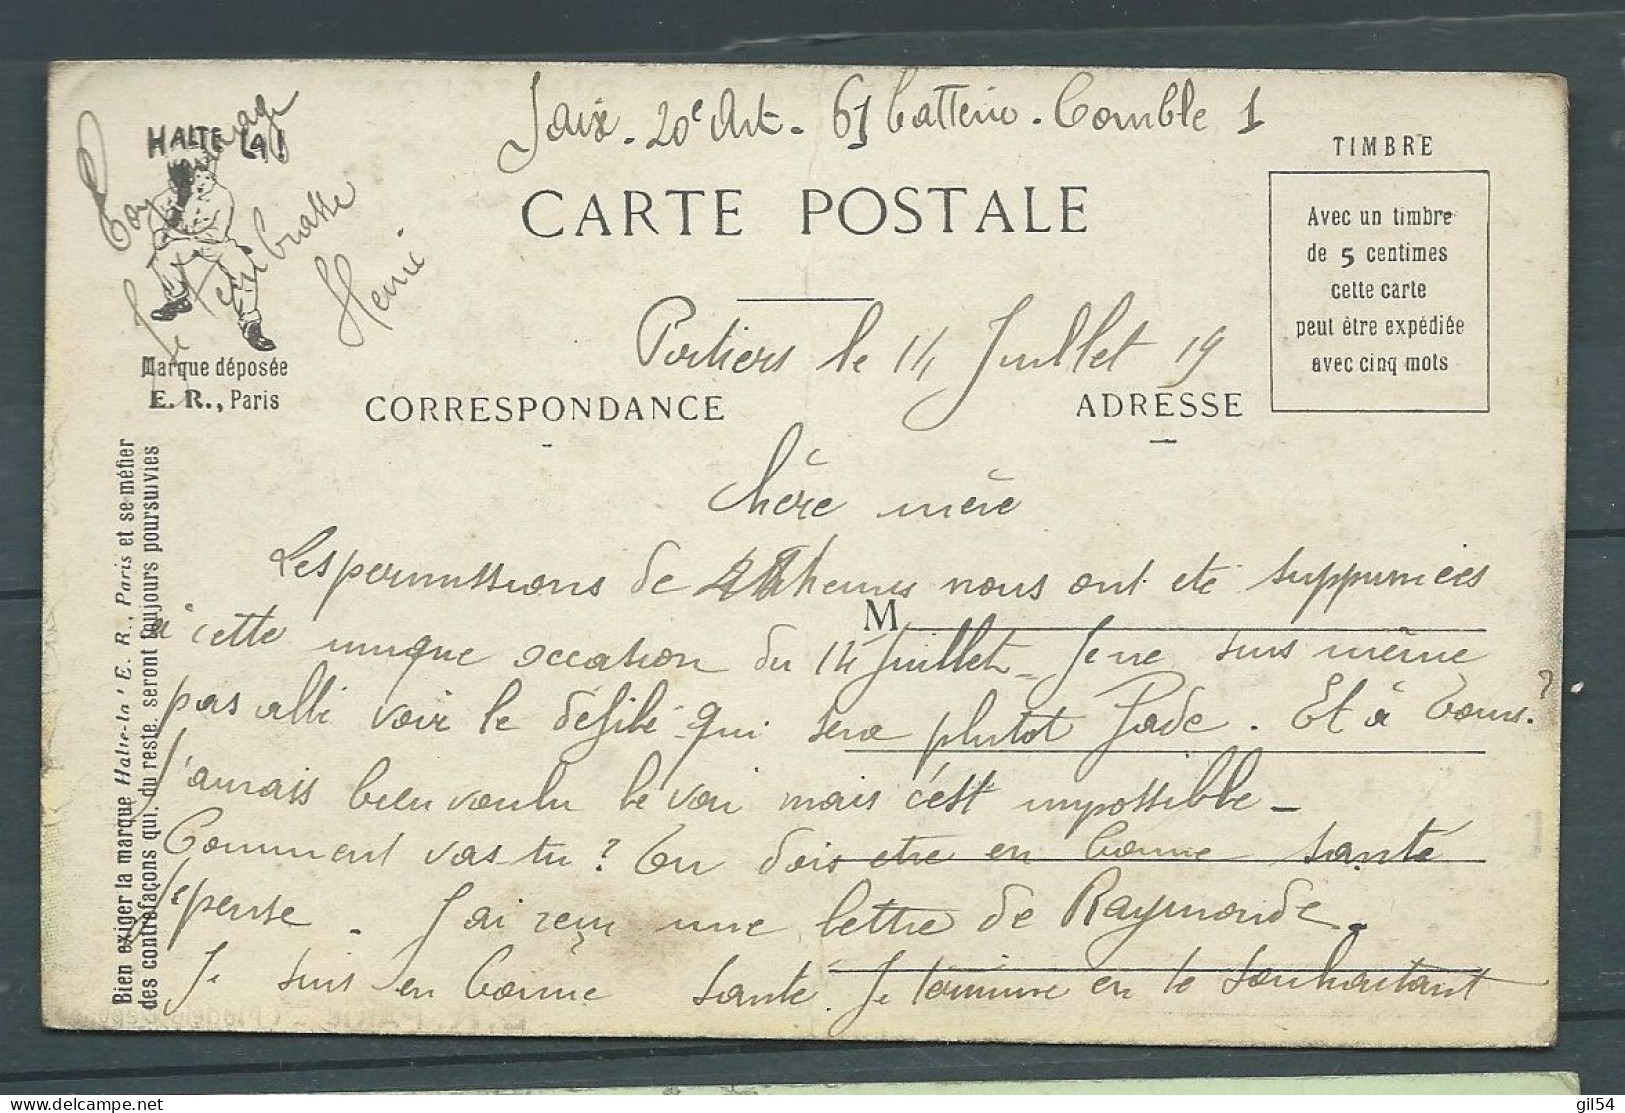 Jaix - 20e Art - 61 batterie - Comble 1
HALTE LA !
Bon courage
Je t'embrasse
Henri
Marque déposée
E. R., Paris
CARTE POSTALE
TIMBRE
Avec un timbre
de 5 centimes
cette carte
peut être expédiée
avec cinq mots
Poitiers le 14 Juillet 19
CORRESPONDANCE
ADRESSE
Bien exiger la marque Halte-là ! E. R., Paris et se méfier
des contrefaçons qui, du reste, seront toujours poursuivies
Chère mère
Les permissions de 48 heures nous ont été supprimées
M
à cette unique occasion du 14 Juillet - Je ne suis même
pas allé voir le défilé qui sera plutôt fade. Et à Tours ?
J'aurais bien voulu le voir mais c'est impossible -
Comment vas tu ? Tu dois etre en bonne santé
je pense. J'ai reçu une lettre de Raymonde.
Je suis en bonne santé. Je termine en te souhaitant
gil54